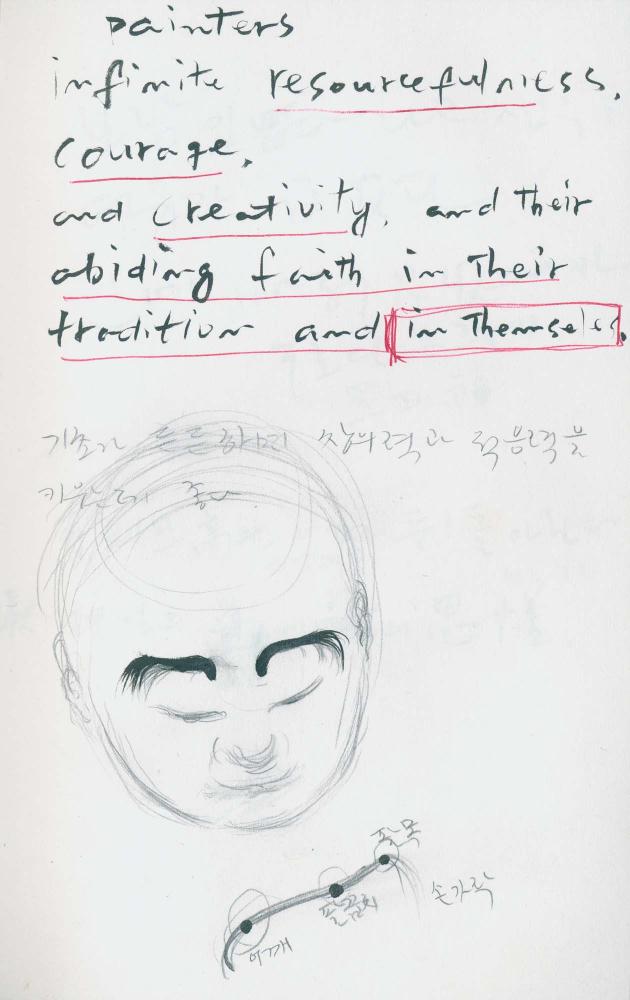 painters
infinite resourcefulness,
Courage,
and creativity, and their
abiding faith in their
tradition and in themseles.
기초가 튼튼하면 창의력과 적응력을
키우는데 좋다
팔목
손가락
팔꿈치
어깨